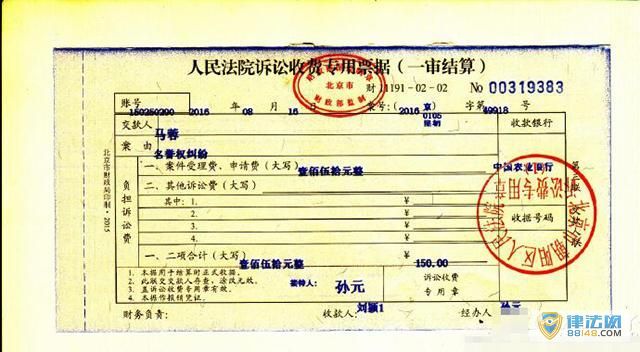 人民法院诉讼收费专用票据（一审结算）
北京市
财政部监制
财 11191-02-02 No 00319383
账号 150250200 2016 年 08 月 16 案号：（2016 京0105民初 ）字第 49918 号
交款人 马蓉 收款银行
案由 名誉权纠纷
负担诉讼费
一、案件受理费、申请费（大写） 壹佰伍拾元整 中国农业银行
二、其他诉讼费（大写） ¥
其中：1. ¥
2. ¥
3. ¥
4. ¥
收据号码
一、二项合计（大写） 壹佰伍拾元整 ¥ 150.00
1. 本据用于结算的正式收据。
2. 此联交交款人存查，涂改无效。
3. 盖诉讼收费专用章有效。
4. 本据作报销凭证。
接转人： 孙元
诉讼收费
专用章
财务负责： 收款人： 刘颖1 经办人： 孙元
北京市财政局印制·2015
北京市朝阳区人民法院
诉讼费专用章
律法网
88148.COM